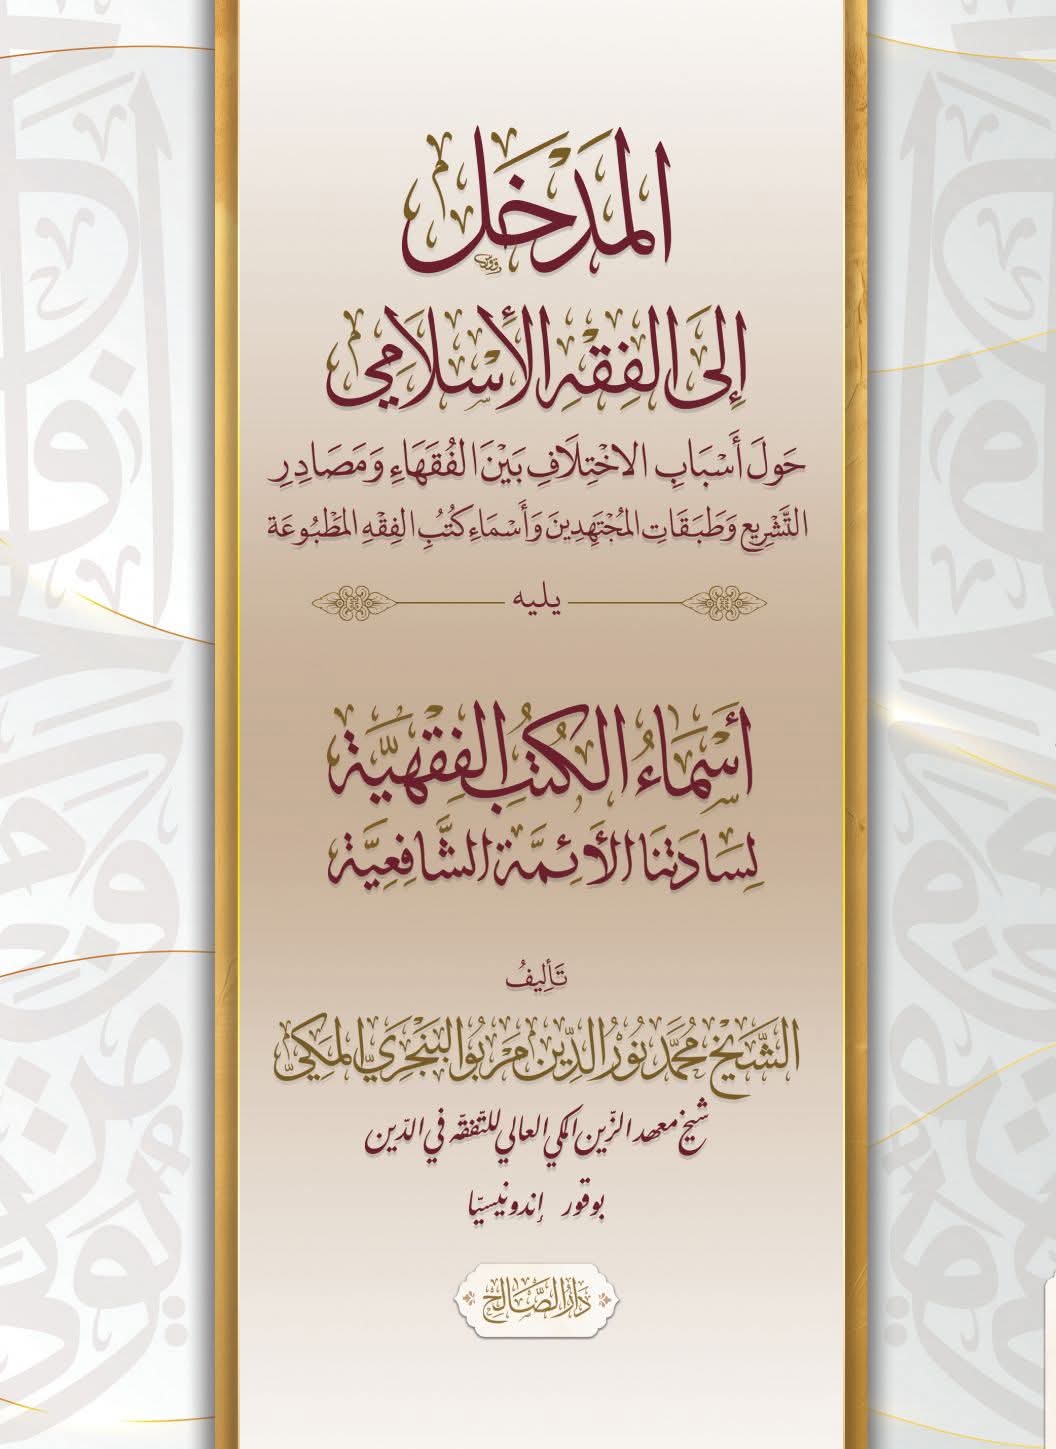 المَدْخَل
إِلَى الفِقْهِ الأِسْلَامِي
حَولَ أَسْبَابِ الاخْتِلَافِ بَيْنَ الفُقَهَاءِ وَمَصَادِرِ
التَّشْرِيعِ وَطَبَقَاتِ المُجْتَهِدِينَ وَأَسْمَاءِ كُتُبِ الفِقْهِ المَطْبُوعَة
يليه
أَسْمَاءُ الكُتُبِ الفِقْهِيَّة
لِسَادَتِنَا الأَئِمَّة الشَّافِعِيَّة
تَأليفُ
الشَّيْخ مُحَمَّد نُورُ الدِّين مَرْبُو البَنْجَرِيّ المَكِيّ
شيخ معهد الزّين المكي العالي للتّفقّه في الدّين
بوقور إندونيسيّا
دَارُ الصَّالِح